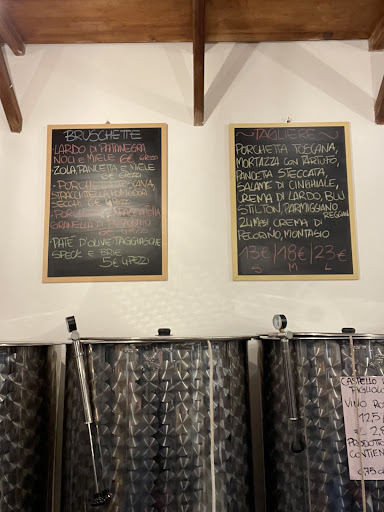 BRUSCHETTE
• LARDO DI PATANEGRA
NOCI E MIELE 6€ 4 PEZZI
• ZOLA, PANCETTA E MIELE
6€ 4 PEZZI
• PORCHETTA
STRACCIATELLA
• PATÈ D'OLIVE TAGGIASCHE
SPECK E BRIE
5€ 4 PEZZI
~ TAGLIERE ~
PORCHETTA TOSCANA,
MORTAZZA CON TARTUFO,
PANCETTA STECCATA,
SALAME DI CINGHIALE,
CREMA DI LARDO, BLU
STILTON, PARMIGGIANO
REGGIANO
24 MESI CREMA DI
PECORINO, MONTASIO
13€ / 18€ / 23€
S M L
CASTELLO
TAGLIOLO
VINO RO
12,5
2,8
PRODOTTO
CONTIEN